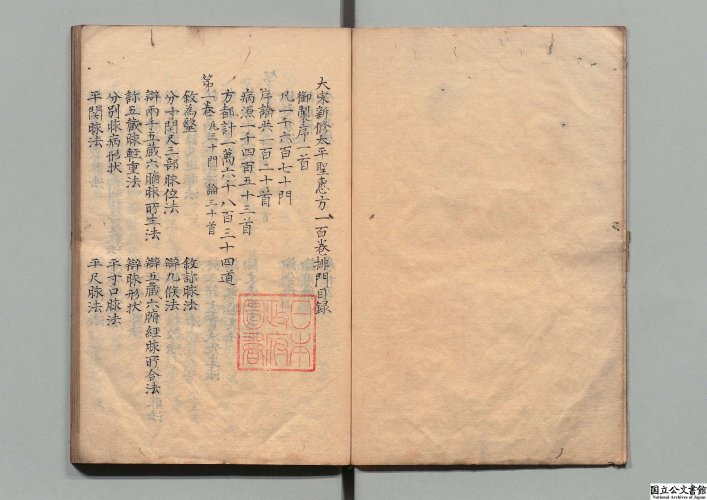 大宋新修太平聖惠方一百卷排門目録
御製序一首
凡一千六百七十門
序論共一百二十首
病源一千四百五十三首
方都計一萬六千八百三十四道
第一卷 凡三十門 論三十首
敘為醫 敘診脉法
分寸関尺三部脉位法 辯九候法
辯兩手五藏六腑脉所生法 辯五藏六腑經脉所合法
診五藏脉輕重法 辯脉形状
分別脉病形状 平寸口脉法
平関脉法 平尺脉法
日本
政府
圖書
国立公文書館
National Archives of Japan